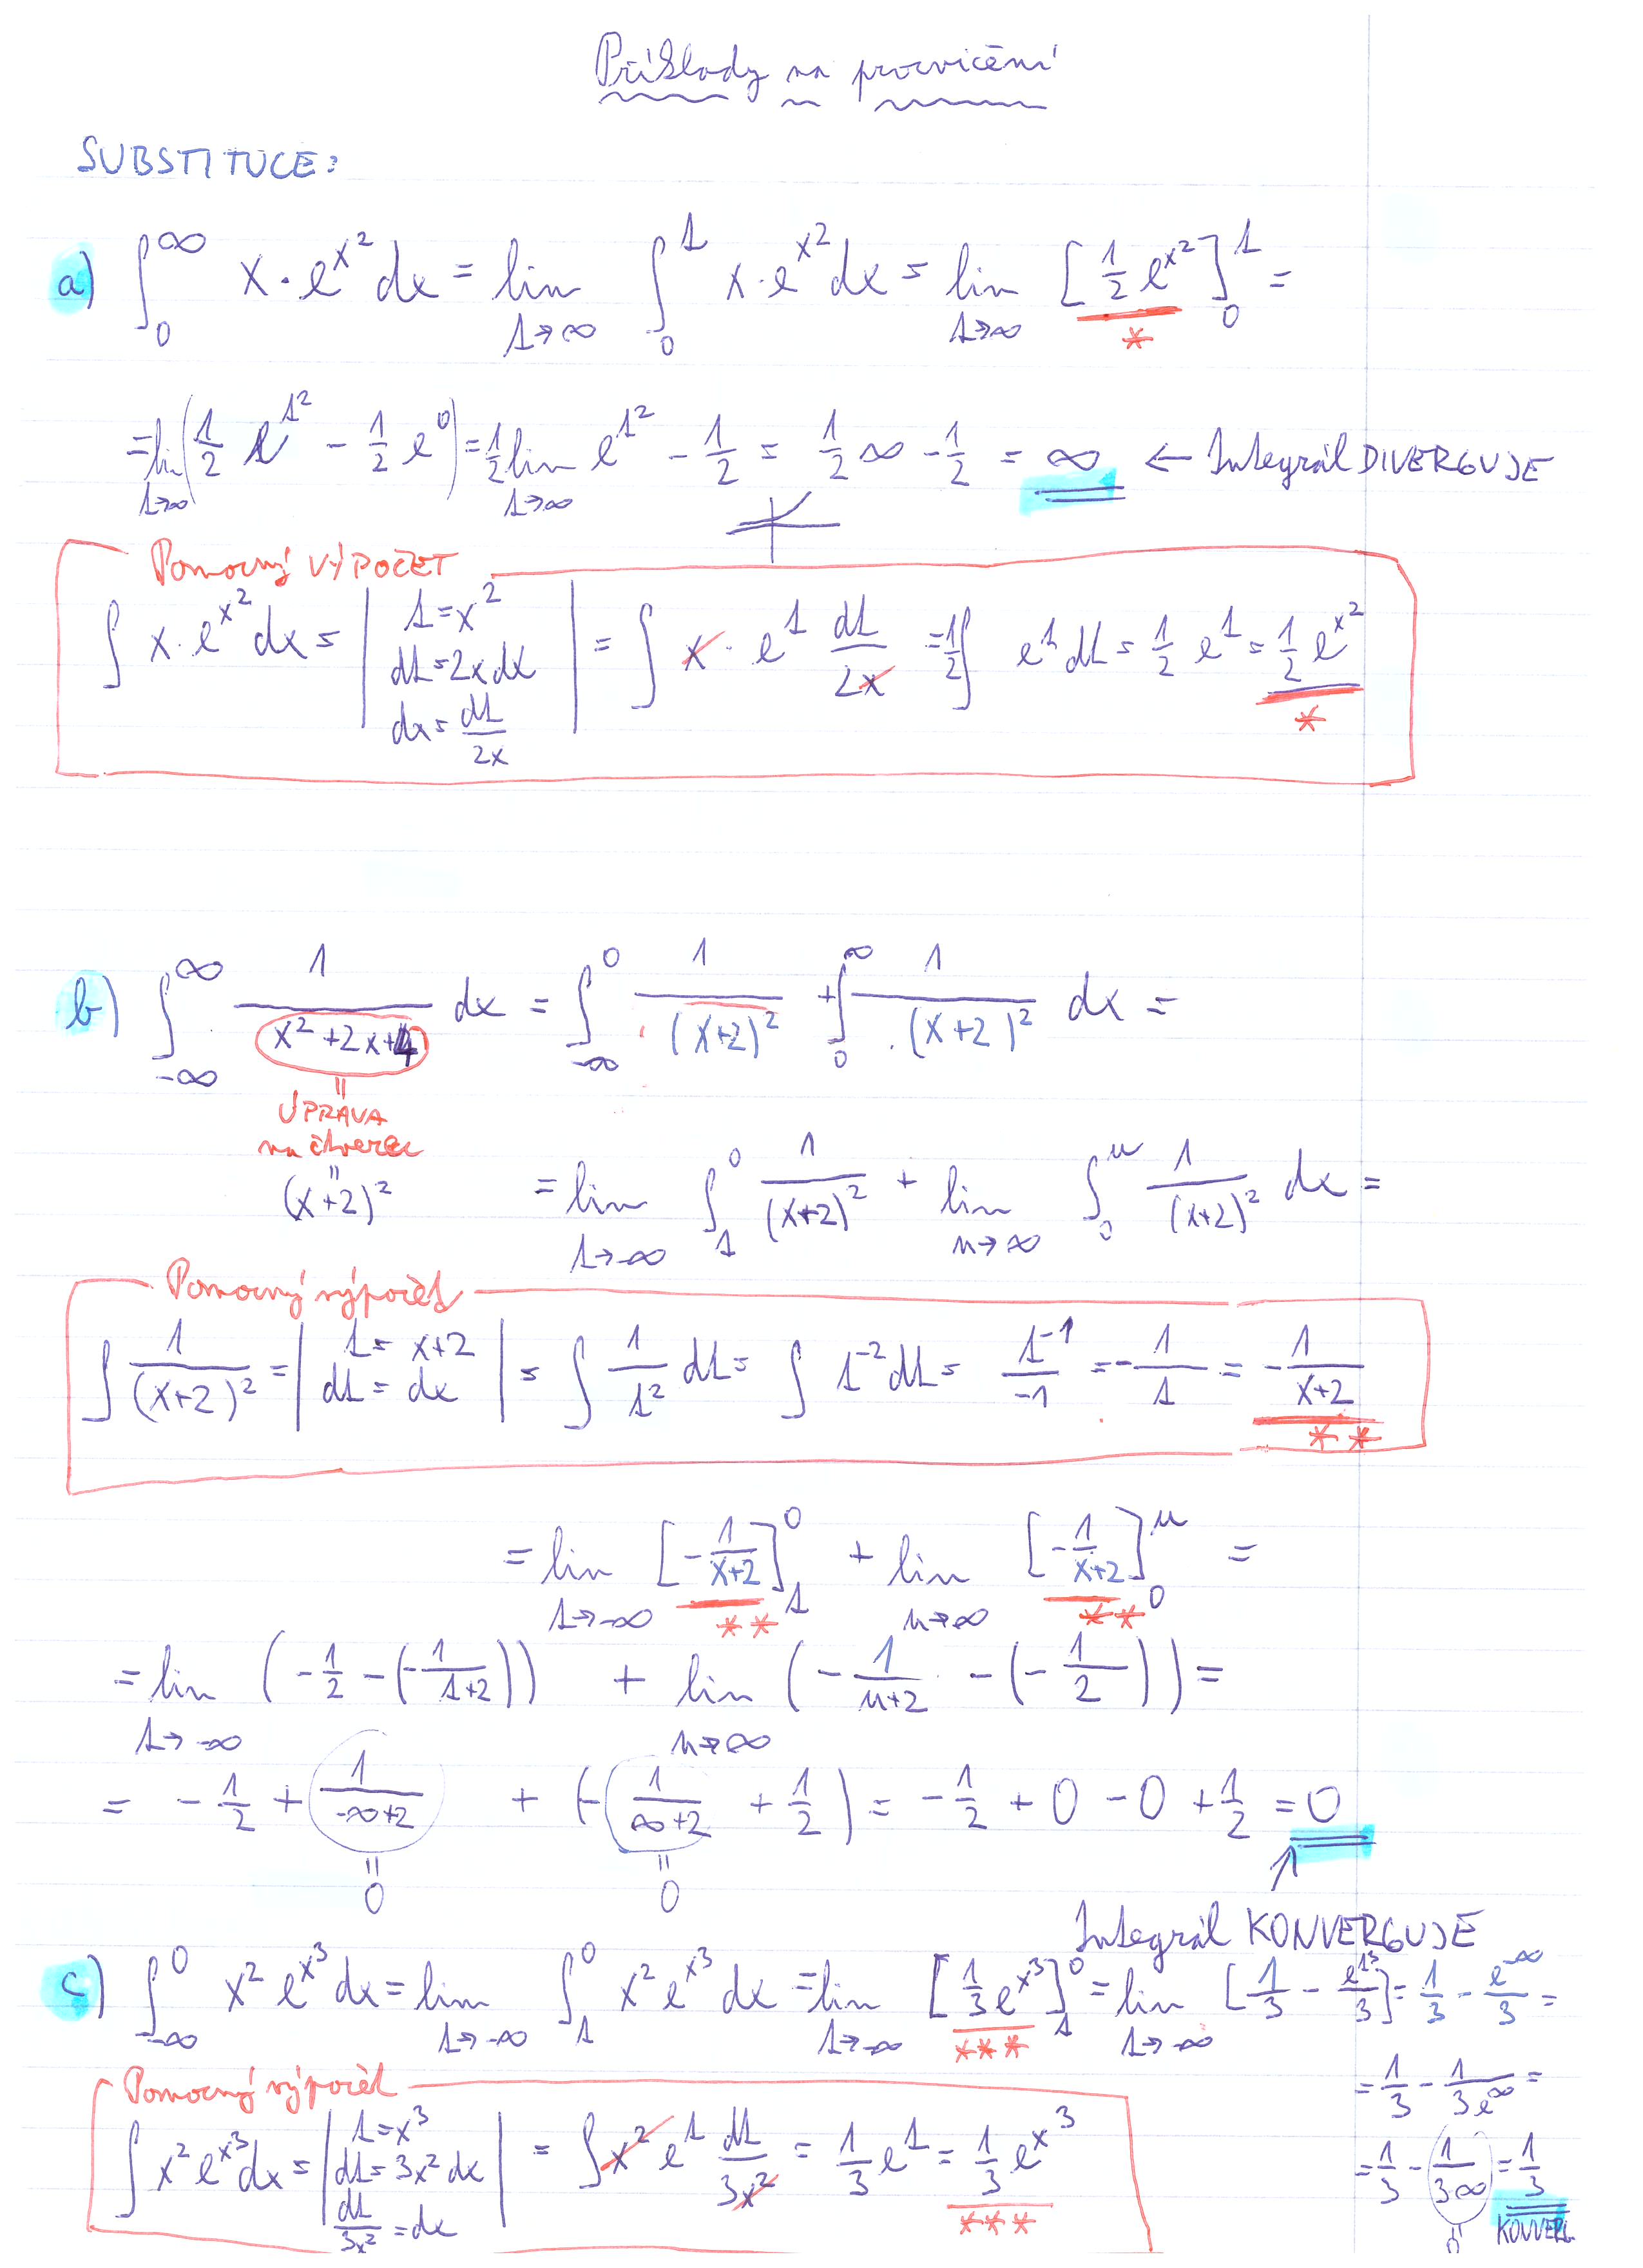 Příklady na procvičení
SUBSTITUCE:
a) ∫₀^∞ x·e^{x²} dx = lim_{t→∞} ∫₀^t x·e^{x²} dx = lim_{t→∞} [½ e^{x²}]₀^t =
*
= lim_{t→∞} (½ e^{t²} - ½ e⁰) = ½ lim_{t→∞} e^{t²} - ½ = ½ ∞ - ½ = ∞ ← Integrál DIVERGUJE
Pomocný VÝPOČET
∫ x·e^{x²} dx = | t = x² dt = 2x dx dx = dt/2x | = ∫ x · e^t dt/2x = ½ ∫ e^t dt = ½ e^t = ½ e^{x²}
*
b) ∫_{-∞}^∞ 1/(x²+2x+4) dx = ∫_{-∞}^0 1/(x+2)² + ∫₀^∞ 1/(x+2)² dx =
=
ÚPRAVA
na čtverec
=
(x+2)²
= lim_{t→-∞} ∫_t^0 1/(x+2)² + lim_{u→∞} ∫₀^u 1/(x+2)² dx =
Pomocný výpočet
∫ 1/(x+2)² = | t = x+2 dt = dx | = ∫ 1/t² dt = ∫ t^{-2} dt = t^{-1}/-1 = -1/t = -1/(x+2)
**
= lim_{t→-∞} [-1/(x+2)]_t^0 + lim_{u→∞} [-1/(x+2)]_0^u =
** **
= lim_{t→-∞} (-½ - (-1/(t+2))) + lim_{u→∞} (-1/(u+2) - (-1/2)) =
= -½ + 1/(-∞+2) + (-1/(∞+2) + ½) = -½ + 0 - 0 + ½ = 0
= =
0 0
↑
Integrál KONVERGUJE
c) ∫_{-∞}^0 x² e^{x³} dx = lim_{t→-∞} ∫_t^0 x² e^{x³} dx = lim_{t→-∞} [⅓ e^{x³}]_t^0 = lim_{t→-∞} [⅓ - e^{t³}/3] = ⅓ - e^{-∞}/3 =
***
= ⅓ - 1/(3e^∞) =
= ⅓ - 1/(3∞) = ⅓
=
0
KONVERG.
Pomocný výpočet
∫ x² e^{x³} dx = | t = x³ dt = 3x² dx dt/3x² = dx | = ∫ x² e^t dt/3x² = ⅓ e^t = ⅓ e^{x³}
***